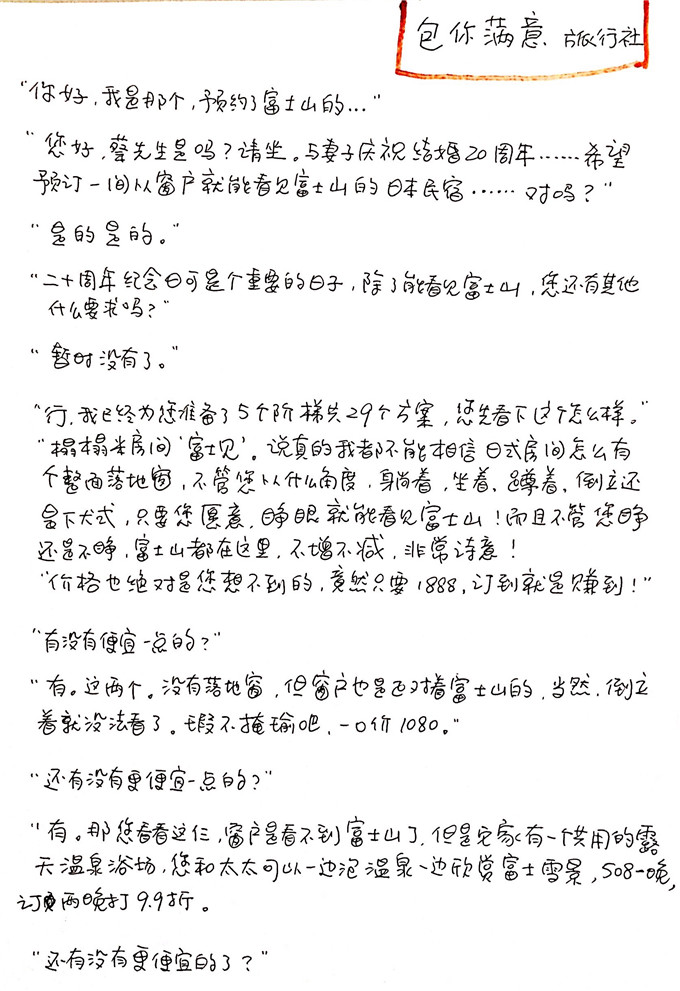 包你满意 旅行社
"你好，我是那个，预约了富士山的..."
"您好，蔡先生是吗？请坐。与妻子庆祝结婚20周年……希望
预订一间从窗户就能看见富士山的日本民宿……对吗？"
"是的是的。"
"二十周年纪念日可是个重要的日子，除了能看见富士山，您还有其他
什么要求吗？"
"暂时没有了。"
"行，我已经为您准备了5个阶梯共29个方案，您先看下这个怎么样。"
"榻榻米房间'富士见'。说真的我都不能相信日式房间怎么有
个整面落地窗，不管您从什么角度，躺着，坐着、蹲着、倒立还
是下犬式，只要您愿意，睁眼就能看见富士山！而且不管您睁
还是不睁，富士山都在这里，不增不减，非常诗意！
"价格也绝对是您想不到的，竟然只要1888，订到就是赚到！"
"有没有便宜一点的？"
"有。这两个。没有落地窗，但窗户也是正对着富士山的，当然，倒立
着就没法看了。瑕不掩瑜吧，一口价1080。"
"还有没有更便宜一点的？"
"有。那您看看这仨，窗户是看不到富士山了，但是它家有一个共用的露
天温泉浴场，您和太太可以一边泡温泉一边欣赏富士雪景，508一晚，
订两晚打9.9折。
"还有没有更便宜的了？"